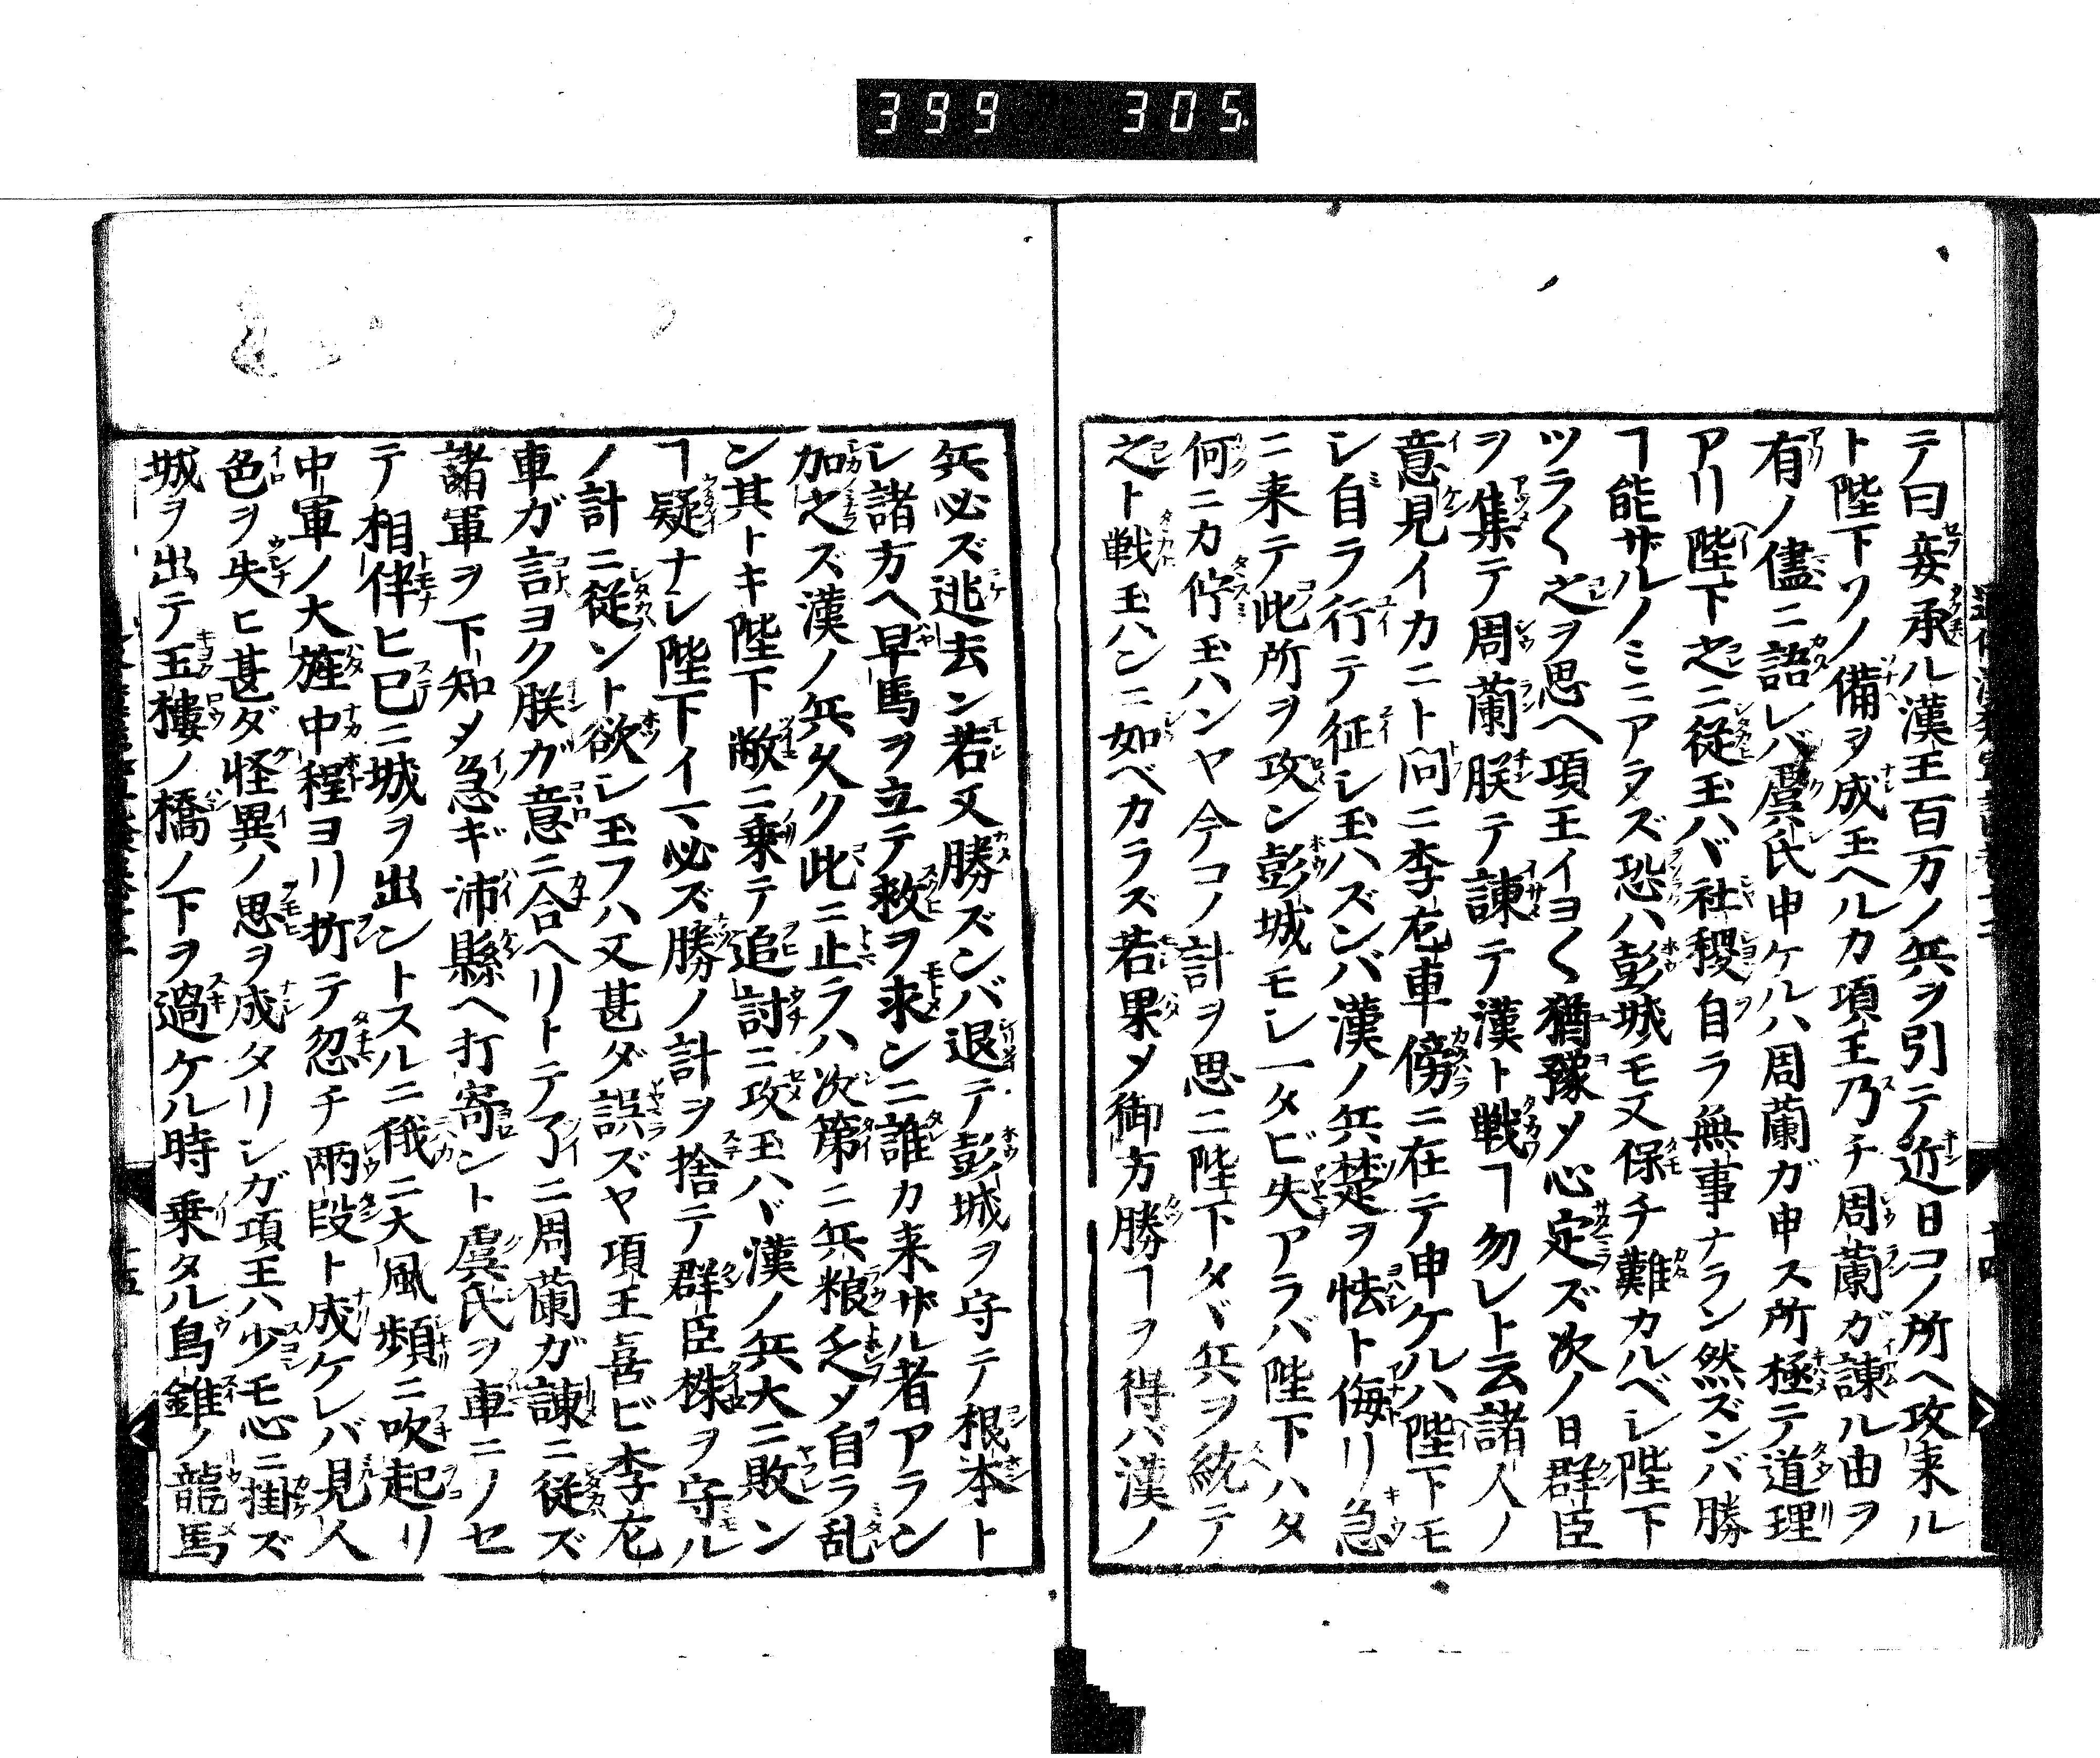 399 305
テ曰妾承ル漢王百万ノ兵ヲ引テ近日コノ所ヘ攻来ル
ト陛下ソノ備ヲ成玉ヘルカ項王乃チ周蘭ガ諌ル由ヲ
有ノ儘ニ語レバ虞氏申ケルハ周蘭ガ申ス所極テ道理
アリ陛下之ニ従玉ハヾ社稷自ラ無事ナラン然ズンバ勝
ヿ能ザルノミニアラズ恐ハ彭城モ又保チ難カルベシ陛下
ツラ〱之ヲ思ヘ項王イヨ〱猶豫ソ心定ズ次ノ日群臣
ヲ集テ周蘭朕テ諌テ漢ト戦ヿ勿レト云諸人ノ
意見イカニト問ニ李左車傍ニ在テ申ケルハ陛下モ
シ自ラ行テ征シ玉ハズンバ漢ノ兵楚ヲ怯ト侮リ急
ニ来テ此所ヲ攻ン彭城モシ一タビ失アラバ陛下ハタ
何ニカ佇玉ハンヤ今コノ計ヲ思ニ陛下タヾ兵ヲ統テ
之ト戦玉ハンニ如ベカラズ若果メ御方勝ヿヲ得バ漢ノ
兵必ズ逃去ン若又勝ズンバ退テ彭城ヲ守テ根本ト
シ諸方ヘ早馬ヲ立テ救ヲ求ンニ誰カ来ザル者アラン
加之ズ漢ノ兵久ク此ニ止ラハ次第ニ兵粮乏メ自ラ乱
ン其トキ陛下敝ニ乗テ追討ニ攻玉ハヾ漢ノ兵大ニ敗ン
ヿ疑ナシ陛下イマ必ズ勝ノ計ヲ捨テ群臣株ヲ守ル
ノ計ニ従ント欲シ玉フハ又甚ダ誤ズヤ項王喜ビ李左
車ガ言ヨク朕ガ意ニ合ヘリトテ了ニ周蘭ガ諌ニ従ズ
諸軍ヲ下知メ急ギ沛縣ヘ打寄ント虞氏ヲ車ニノセ
テ相伴ヒ已ニ城ヲ出ントスルニ俄ニ大風頻ニ吹起リ
中軍ノ大旌中程ヨリ折テ忽チ両段ト成ケレバ見人
色ヲ失ヒ甚ダ怪異ノ思ヲ成タリシガ項王ハ少モ心ニ掛ズ
城ヲ出テ玉樓ノ橋ノ下ヲ過ケル時乗タル烏錐ノ龍馬